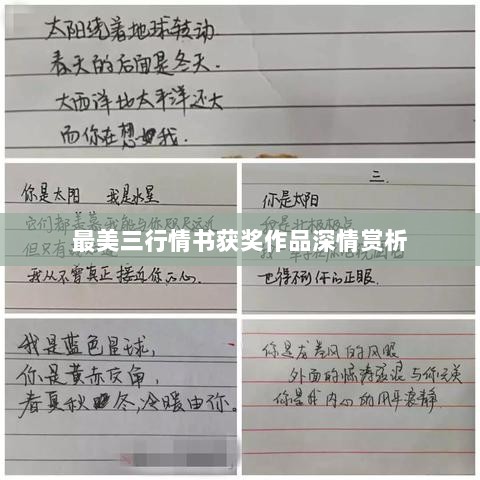 太阳绕着地球转动
春天的后面是冬天.
大西洋比太平洋还大
而你在想我.
你是太阳 我是水星
它们都羡慕我能与你
但只有
我从不曾真正接近你的心.
三.
你是太阳
是北极极点
也得不到你的正眼.
最美三行情书获奖作品深情赏析
我是蓝色星球,
你是黄赤交角,
春夏秋冬,冷暖由你.
你是龙卷风的风眼
外面的惊涛骇浪与你无关
你是我内心的风平浪静.